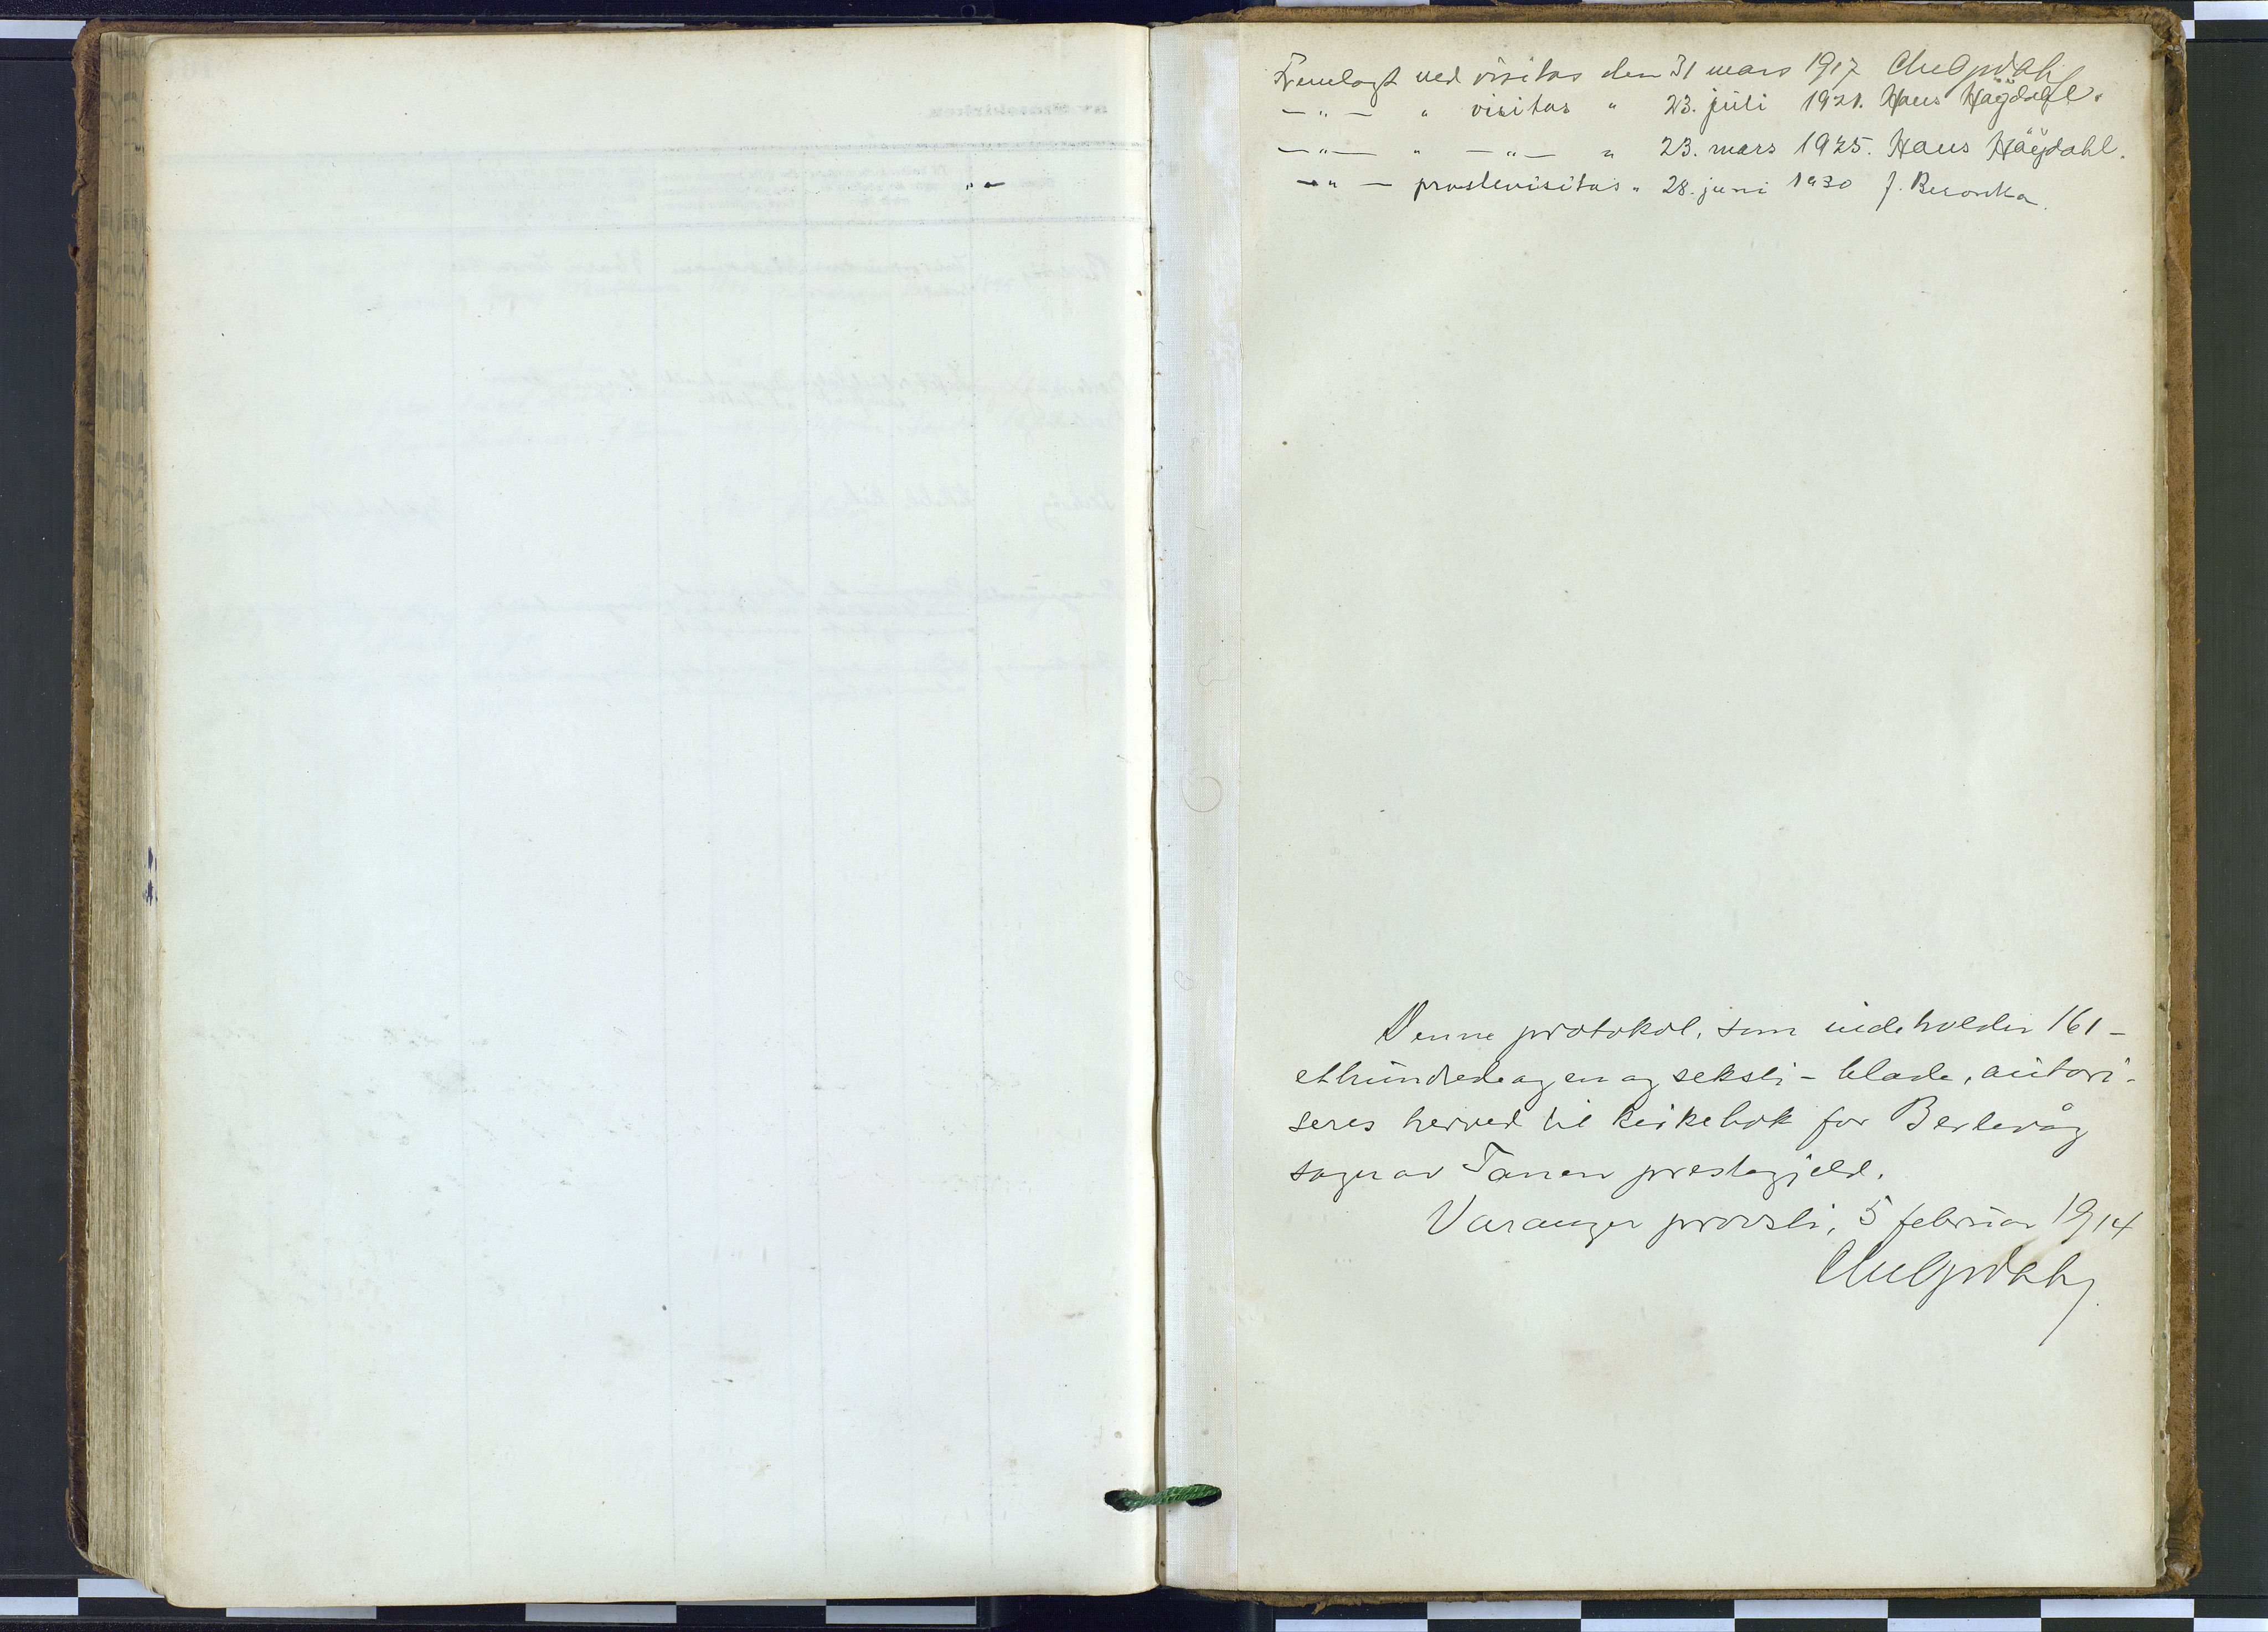 Fremlagt ved visitas den 31 mars 1917
— " — " visitas " 23. juli 1921. Hans Høgdahl.
— " — " — " — " 23. mars 1925. Hans Høgdahl.
— " — prostevisitas " 28. juni 1930 J. Beronka.
Denne protokol, som indeholder 161 -
ethundrede og en og seksti - blade, autori-
seres herved til kirkebok for Berlevåg
sogn av Tanen prestegjeld.
Varanger provsti, 5 februar 1914